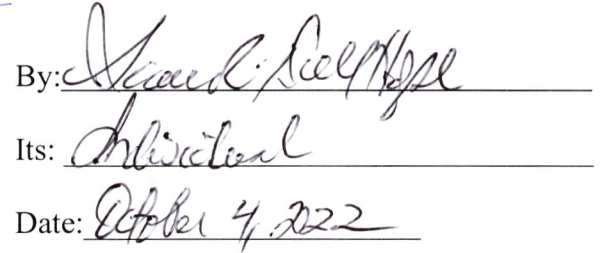 By:
Its: Individual
Date: October 4, 2022